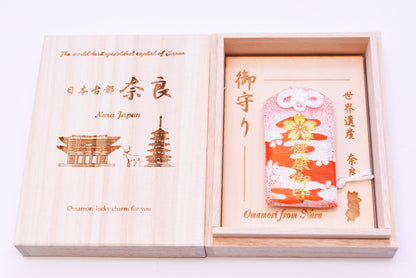 The world heritage/oldest capital of Japan
日本古都 奈良
Nara Japan
Omamori lucky charm for you
御守り
世界遺産 奈良
健康御守
Omamori from Nara